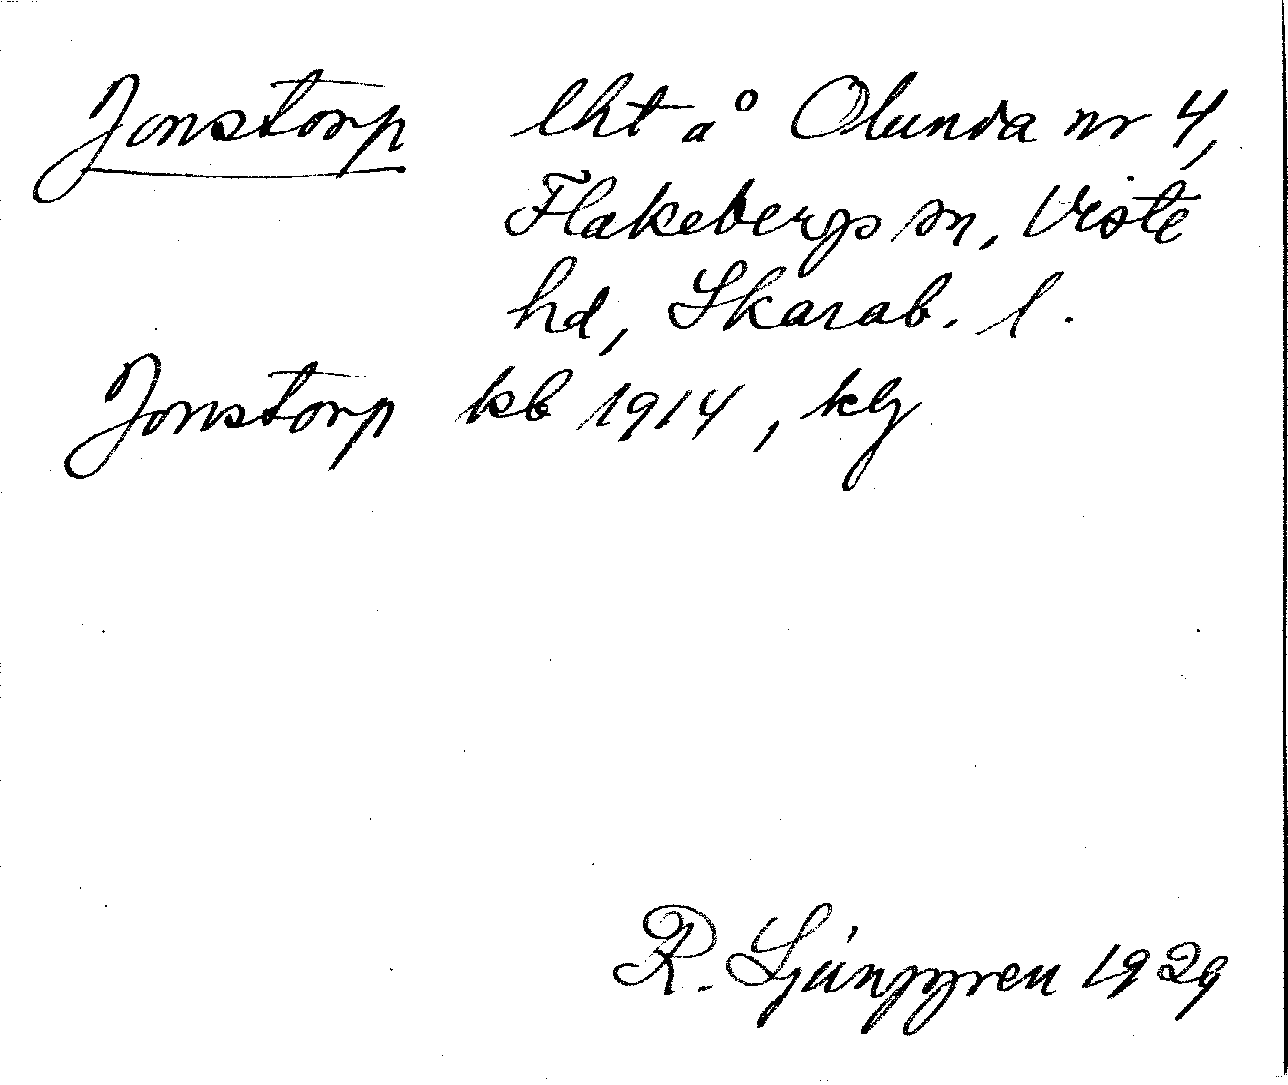 Jonstorp lht å Olunda nr 4,
Flakebergs sn, Viste
hd, Skarab. l.
Jonstorp kb 1914, klg
R. Ljunggren 1929